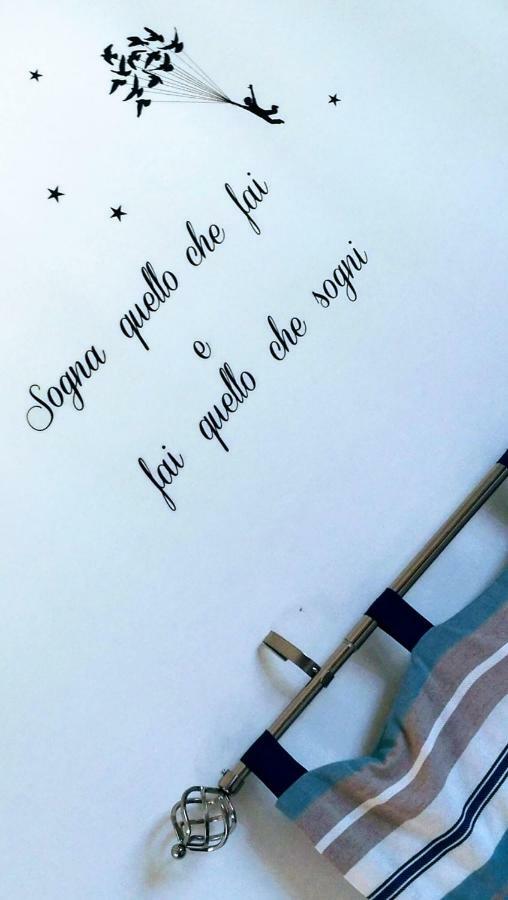 Sogna quello che fai
e
fai quello che sogni